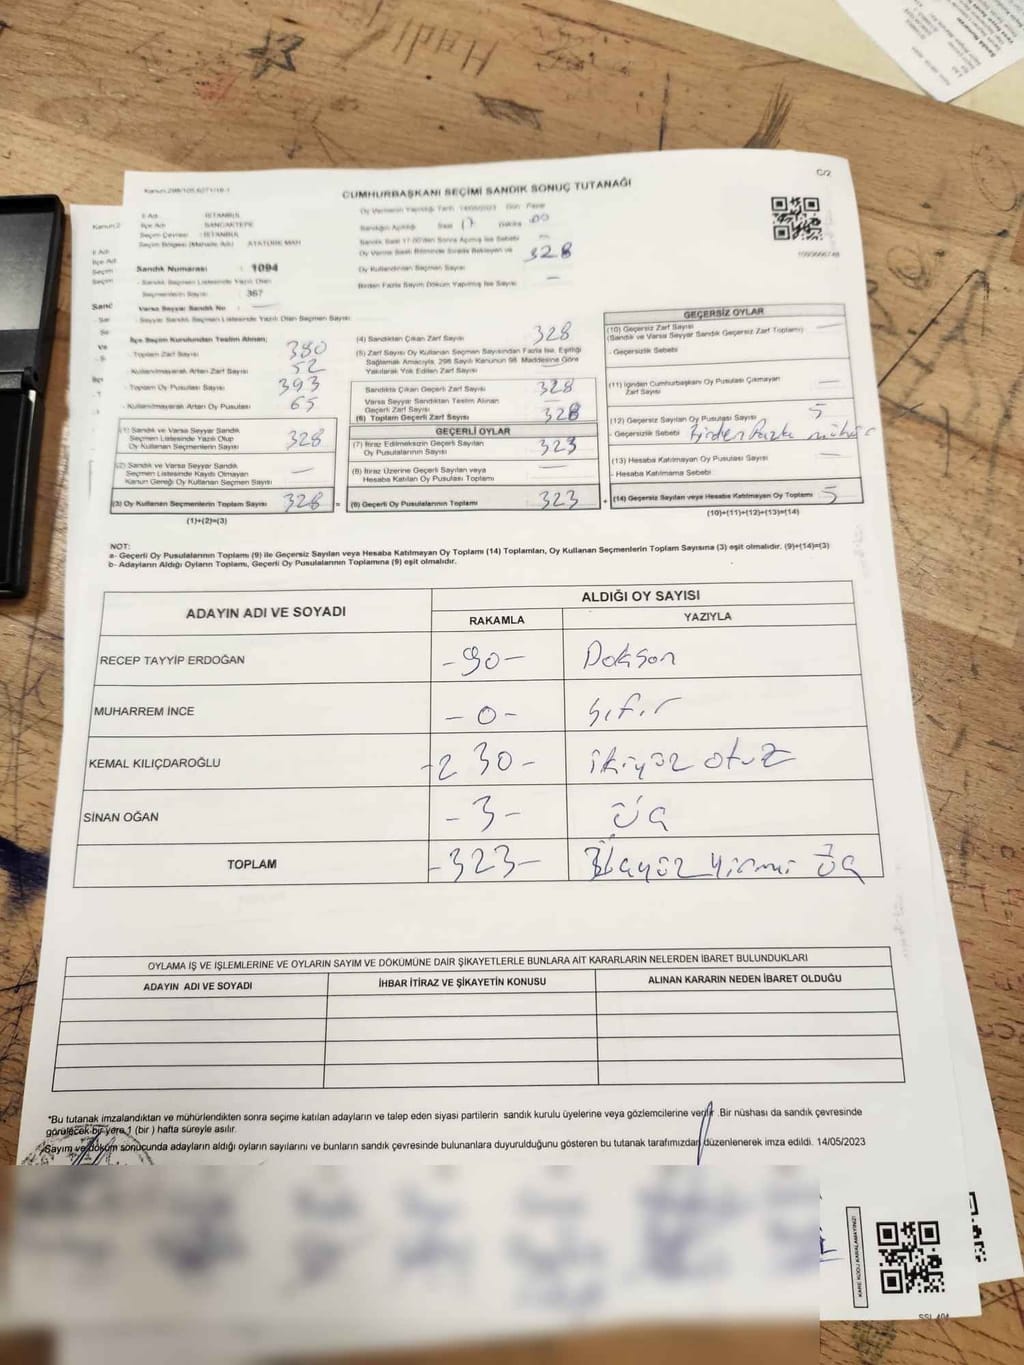 C/2
Kanun:298/105,6271/18-1
CUMHURBAŞKANI SEÇİMİ SANDIK SONUÇ TUTANAĞI
İl Adı : İSTANBUL
İlçe Adı : SANCAKTEPE
Seçim Çevresi : İSTANBUL
Seçim Bölgesi (Mahalle Adı) ATATÜRK MAH
Sandık Numarası : 1094
- Sandık Seçmen Listesinde Yazılı Olan
Seçmenlerin Sayısı : 367
Varsa Seyyar Sandık No :
- Seyyar Sandık Seçmen Listesinde Yazılı Olan Seçmen Sayısı:
Oy Vermenin Yapıldığı Tarih 14/05/2023 Gün : Pazar
Sandığın Açıldığı Saat 17 Dakika 00
Sandık Saat 17:00'den Sonra Açılmış İse Sebebi
Oy Verme Saati Bitiminde Sırada Bekleyen ve
Oy Kullandırılan Seçmen Sayısı
328
Birden Fazla Sayım Döküm Yapılmış İse Sayısı
1093666748
İlçe Seçim Kurulundan Teslim Alınan;
- Toplam Zarf Sayısı 380
- Kullanılmayarak Artan Zarf Sayısı 52
- Toplam Oy Pusulası Sayısı 393
- Kullanılmayarak Artan Oy Pusulası 65
(1) Sandık ve Varsa Seyyar Sandık
Seçmen Listesinde Yazılı Olup
Oy Kullanan Seçmenlerin Sayısı 328
(2) Sandık ve Varsa Seyyar Sandık
Seçmen Listesinde Kayıtlı Olmayan
Kanun Gereği Oy Kullanan Seçmen Sayısı —
(3) Oy Kullanan Seçmenlerin Toplam Sayısı 328 =
(1)+(2)=(3)
(4) Sandıktan Çıkan Zarf Sayısı 328
(5) Zarf Sayısı Oy Kullanan Seçmen Sayısından Fazla İse, Eşitliği
Sağlamak Amacıyla, 298 Sayılı Kanunun 98. Maddesine Göre
Yakılarak Yok Edilen Zarf Sayısı —
Sandıkta Çıkan Geçerli Zarf Sayısı 328
Varsa Seyyar Sandıktan Teslim Alınan
Geçerli Zarf Sayısı —
(6) Toplam Geçerli Zarf Sayısı 328
GEÇERLİ OYLAR
(7) İtiraz Edilmeksizin Geçerli Sayılan
Oy Pusulalarının Sayısı 323
(8) İtiraz Üzerine Geçerli Sayılan veya
Hesaba Katılan Oy Pusulaları Toplamı —
(9) Geçerli Oy Pusulalarının Toplamı 323 +
GEÇERSİZ OYLAR
(10) Geçersiz Zarf Sayısı
(Sandık ve Varsa Seyyar Sandık Geçersiz Zarf Toplamı) —
- Geçersizlik Sebebi
(11) İçinden Cumhurbaşkanı Oy Pusulası Çıkmayan
Zarf Sayısı —
(12) Geçersiz Sayılan Oy Pusulası Sayısı 5
- Geçersizlik Sebebi Birden fazla mühür
(13) Hesaba Katılmayan Oy Pusulası Sayısı —
- Hesaba Katılmama Sebebi
(14) Geçersiz Sayılan veya Hesaba Katılmayan Oy Toplamı 5
(10)+(11)+(12)+(13)=(14)
NOT:
a- Geçerli Oy Pusulalarının Toplamı (9) ile Geçersiz Sayılan veya Hesaba Katılmayan Oy Toplamı (14) Toplamları, Oy Kullanan Seçmenlerin Toplam Sayısına (3) eşit olmalıdır. (9)+(14)=(3)
b- Adayların Aldığı Oyların Toplamı, Geçerli Oy Pusulalarının Toplamına (9) eşit olmalıdır.
ADAYIN ADI VE SOYADI
ALDIĞI OY SAYISI
RAKAMLA YAZIYLA
RECEP TAYYİP ERDOĞAN -90- Doksan
MUHARREM İNCE -0- sıfır
KEMAL KILIÇDAROĞLU -230- ikiyüz otuz
SİNAN OĞAN -3- üç
TOPLAM -323- üçyüz yirmi üç
OYLAMA İŞ VE İŞLEMLERİNE VE OYLARIN SAYIM VE DÖKÜMÜNE DAİR ŞİKAYETLERLE BUNLARA AİT KARARLARIN NELERDEN İBARET BULUNDUKLARI
ADAYIN ADI VE SOYADI İHBAR İTİRAZ VE ŞİKAYETİN KONUSU ALINAN KARARIN NEDEN İBARET OLDUĞU
*Bu tutanak imzalandıktan ve mühürlendikten sonra seçime katılan adayların ve talep eden siyasi partilerin sandık kurulu üyelerine veya gözlemcilerine verilir .Bir nüshası da sandık çevresinde
görülecek bir yere 1 (bir ) hafta süreyle asılır.
Sayım ve döküm sonucunda adayların aldığı oyların sayılarını ve bunların sandık çevresinde bulunanlara duyurulduğunu gösteren bu tutanak tarafımızdan düzenlenerek imza edildi. 14/05/2023
KARE KODU KARALAMAYINIZ!